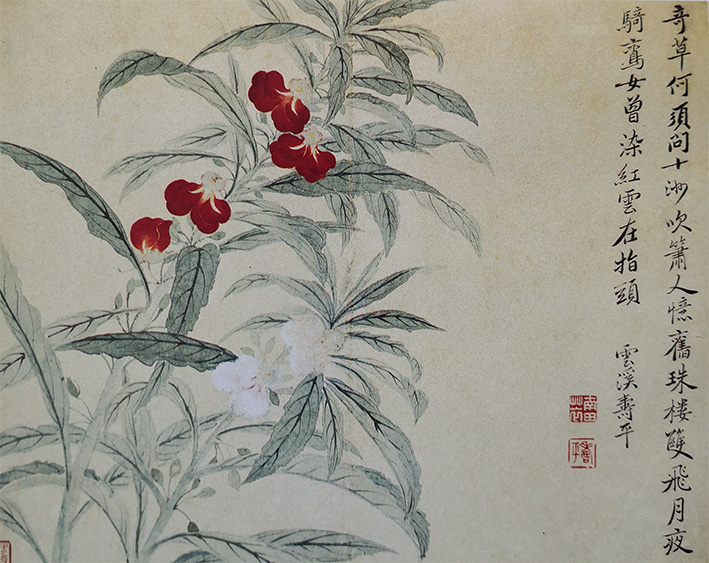 奇草何須問十洲吹簫人憶舊珠樓雙飛月夜
騎鸞女曾染紅雲在指頭
雲溪壽平
南田草衣
壽平